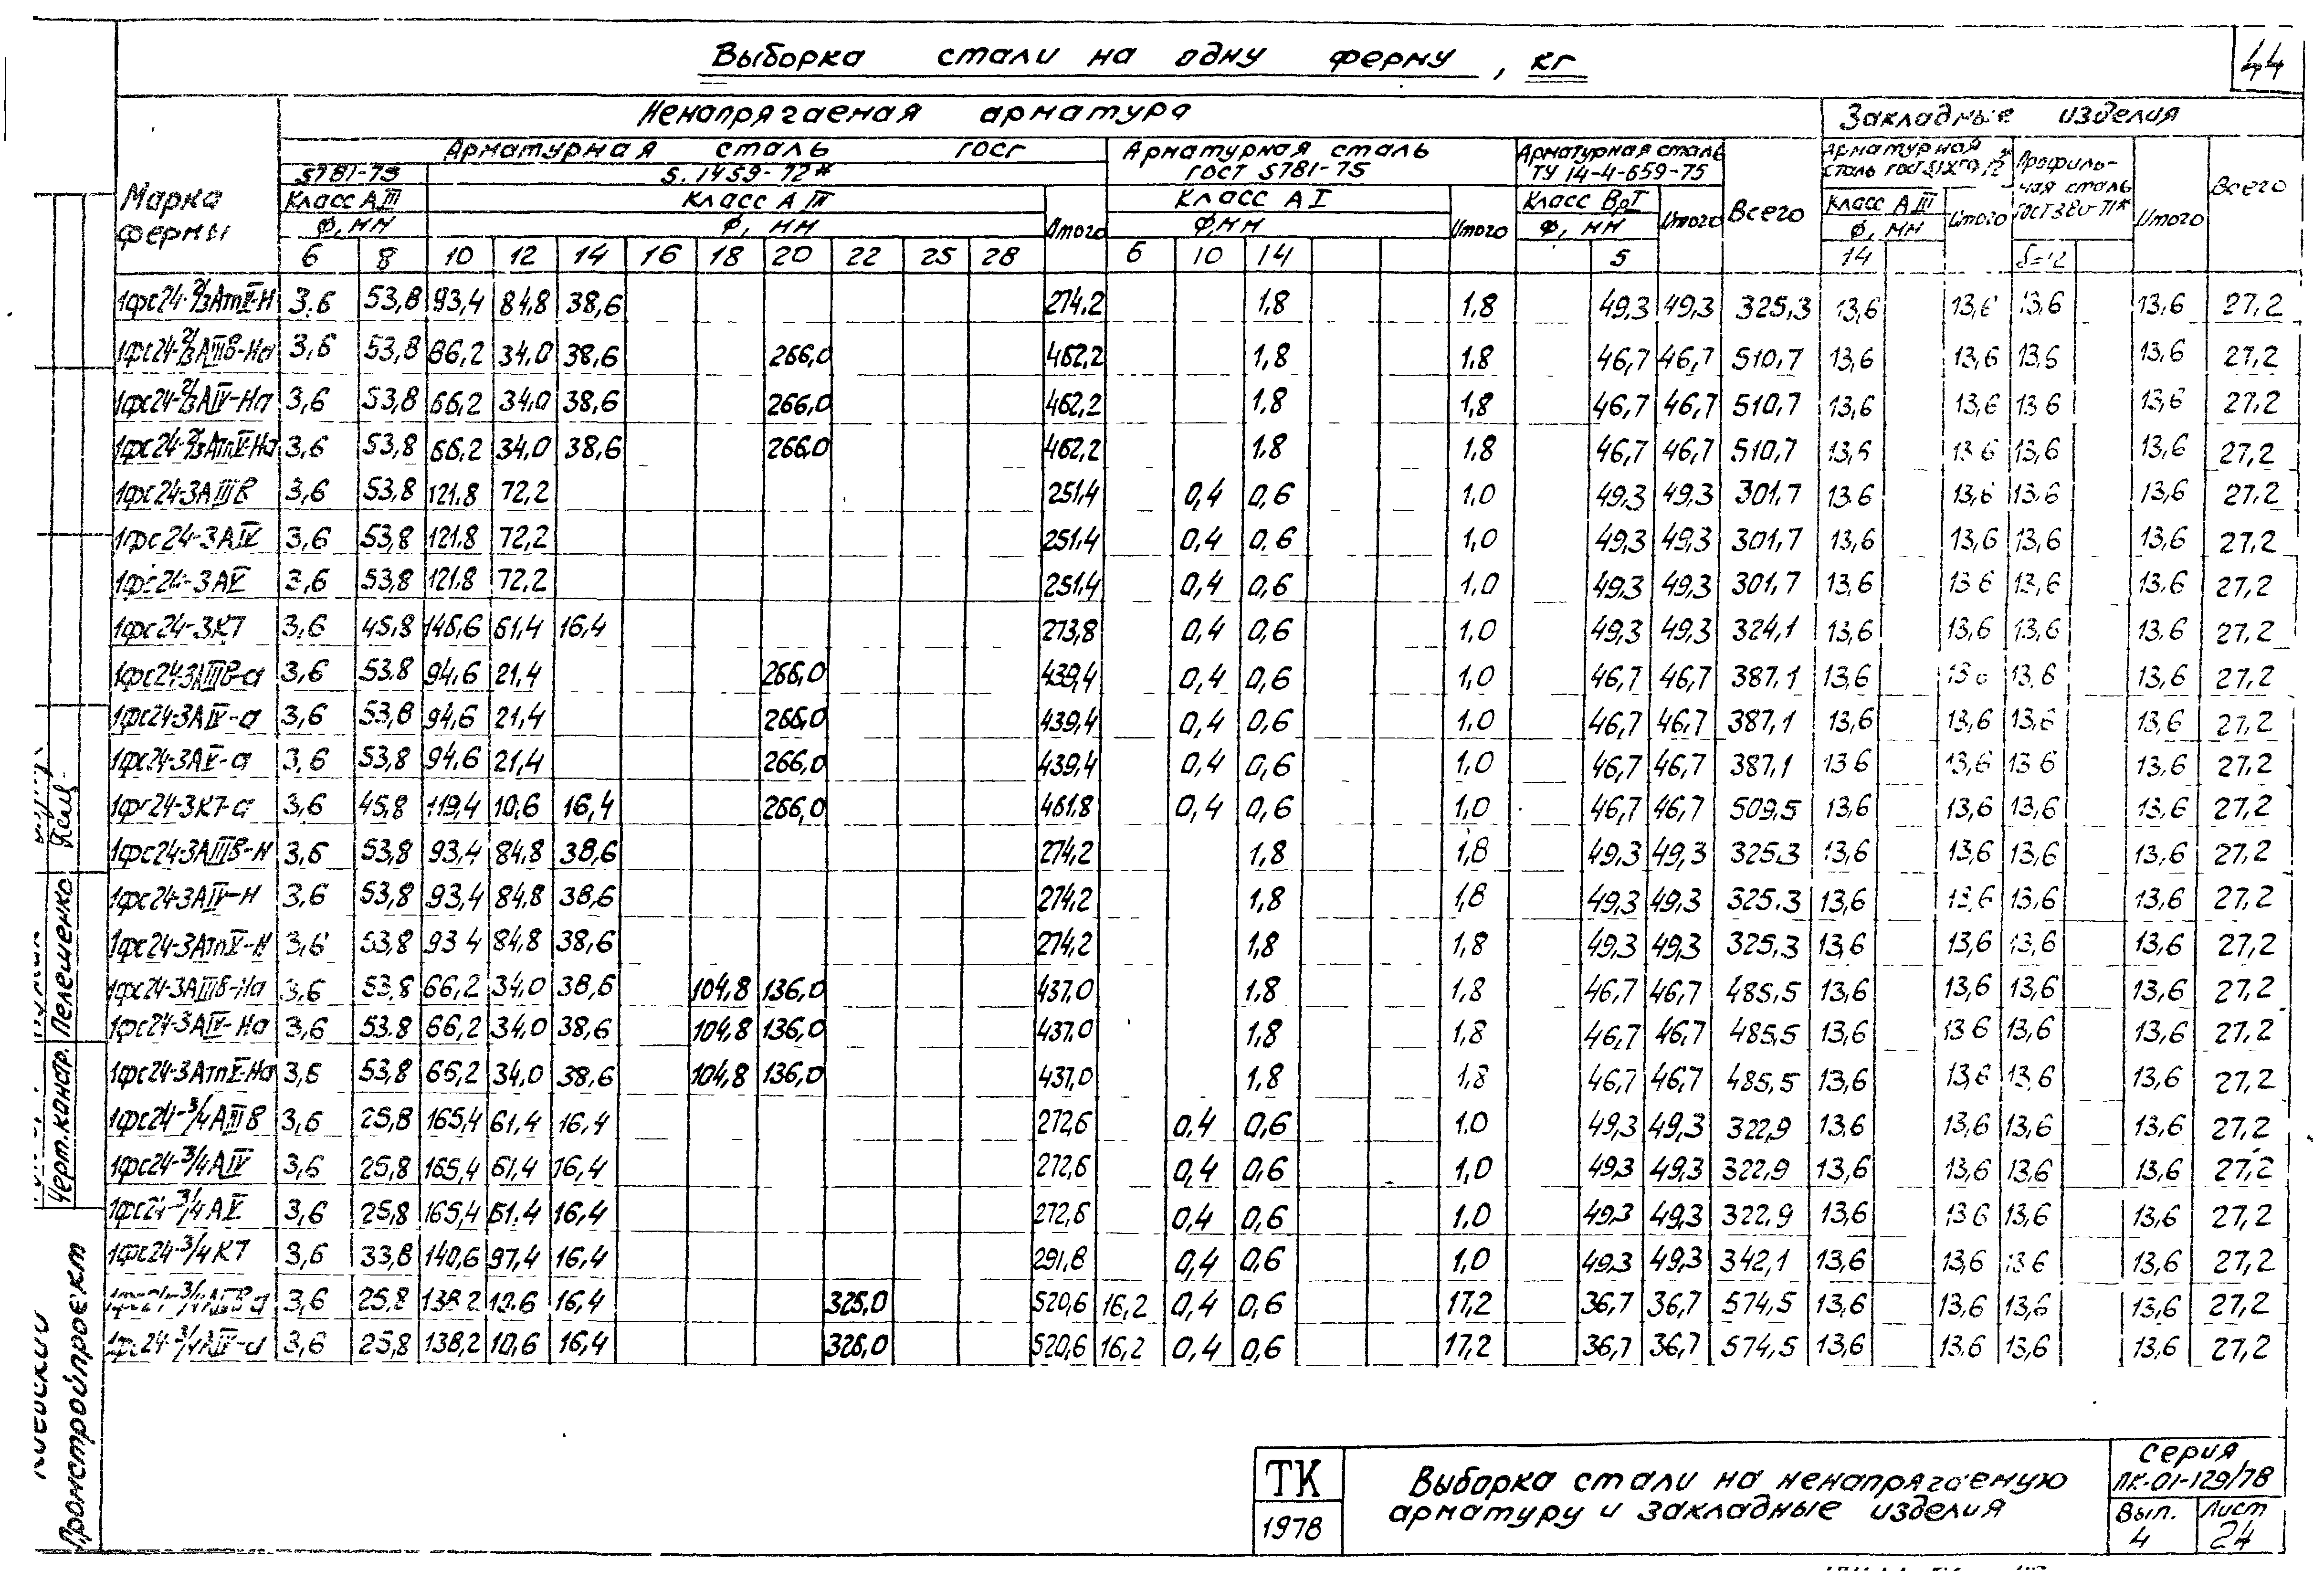 44
Выборка стали на одну ферму, кг
Марка фермы
Ненапрягаемая арматура
Закладные изделия
Арматурная сталь гост
Арматурная сталь ГОСТ 5781-75
Арматурная сталь ТУ 14-4-659-75
Всего
Арматурная сталь гост
Профильная сталь ГОСТ 380-71*
Итого
Всего
5781-75
5.1459-72*
Класс АIII
Класс АIII
Итого
Класс АI
Итого
Класс ВрI
Итого
Класс АIII
Итого
Ф, мм
Ф, мм
Ф, мм
Ф, мм
Ф, мм
6 8 10 12 14 16 18 20 22 25 28 6 10 14 5 14 δ=12
1фс24-2/3АтV-Н 3,6 53,8 93,4 84,8 38,6 274,2 1,8 1,8 49,3 49,3 325,3 13,6 13,6 13,6 13,6 27,2
1фс24-2/3АIIIв-На 3,6 53,8 66,2 34,0 38,6 266,0 462,2 1,8 1,8 46,7 46,7 510,7 13,6 13,6 13,6 13,6 27,2
1фс24-2/3АIV-На 3,6 53,8 66,2 34,0 38,6 266,0 462,2 1,8 1,8 46,7 46,7 510,7 13,6 13,6 13,6 13,6 27,2
1фс24-2/3АтV-На 3,6 53,8 66,2 34,0 38,6 266,0 462,2 1,8 1,8 46,7 46,7 510,7 13,6 13,6 13,6 13,6 27,2
1фс24-3АIIIв 3,6 53,8 121,8 72,2 251,4 0,4 0,6 1,0 49,3 49,3 301,7 13,6 13,6 13,6 13,6 27,2
1фс24-3АIV 3,6 53,8 121,8 72,2 251,4 0,4 0,6 1,0 49,3 49,3 301,7 13,6 13,6 13,6 13,6 27,2
1фс24-3АV 3,6 53,8 121,8 72,2 251,4 0,4 0,6 1,0 49,3 49,3 301,7 13,6 13,6 13,6 13,6 27,2
1фс24-3К7 3,6 45,8 146,6 61,4 16,4 273,8 0,4 0,6 1,0 49,3 49,3 324,1 13,6 13,6 13,6 13,6 27,2
1фс24-3АIIIв-а 3,6 53,8 94,6 21,4 266,0 439,4 0,4 0,6 1,0 46,7 46,7 387,1 13,6 13,6 13,6 13,6 27,2
1фс24-3АIV-а 3,6 53,8 94,6 21,4 266,0 439,4 0,4 0,6 1,0 46,7 46,7 387,1 13,6 13,6 13,6 13,6 27,2
1фс24-3АV-а 3,6 53,8 94,6 21,4 266,0 439,4 0,4 0,6 1,0 46,7 46,7 387,1 13,6 13,6 13,6 13,6 27,2
1фс24-3К7-а 3,6 45,8 119,4 10,6 16,4 266,0 461,8 0,4 0,6 1,0 46,7 46,7 509,5 13,6 13,6 13,6 13,6 27,2
1фс24-3АIIIв-Н 3,6 53,8 93,4 84,8 38,6 274,2 1,8 1,8 49,3 49,3 325,3 13,6 13,6 13,6 13,6 27,2
1фс24-3АIV-Н 3,6 53,8 93,4 84,8 38,6 274,2 1,8 1,8 49,3 49,3 325,3 13,6 13,6 13,6 13,6 27,2
1фс24-3АтV-Н 3,6 53,8 93,4 84,8 38,6 274,2 1,8 1,8 49,3 49,3 325,3 13,6 13,6 13,6 13,6 27,2
1фс24-3АIIIв-На 3,6 53,8 66,2 34,0 38,6 104,8 136,0 437,0 1,8 1,8 46,7 46,7 485,5 13,6 13,6 13,6 13,6 27,2
1фс24-3АIV-На 3,6 53,8 66,2 34,0 38,6 104,8 136,0 437,0 1,8 1,8 46,7 46,7 485,5 13,6 13,6 13,6 13,6 27,2
1фс24-3АтV-На 3,6 53,8 66,2 34,0 38,6 104,8 136,0 437,0 1,8 1,8 46,7 46,7 485,5 13,6 13,6 13,6 13,6 27,2
1фс24-3/4АIIIв 3,6 25,8 165,4 61,4 16,4 272,6 0,4 0,6 1,0 49,3 49,3 322,9 13,6 13,6 13,6 13,6 27,2
1фс24-3/4АIV 3,6 25,8 165,4 61,4 16,4 272,6 0,4 0,6 1,0 49,3 49,3 322,9 13,6 13,6 13,6 13,6 27,2
1фс24-3/4АV 3,6 25,8 165,4 61,4 16,4 272,6 0,4 0,6 1,0 49,3 49,3 322,9 13,6 13,6 13,6 13,6 27,2
1фс24-3/4К7 3,6 33,8 140,6 97,4 16,4 291,8 0,4 0,6 1,0 49,3 49,3 342,1 13,6 13,6 13,6 13,6 27,2
1фс24-3/4АIIIв-а 3,6 25,8 138,2 10,6 16,4 326,0 520,6 16,2 0,4 0,6 17,2 36,7 36,7 574,5 13,6 13,6 13,6 13,6 27,2
1фс24-3/4АIV-а 3,6 25,8 138,2 10,6 16,4 326,0 520,6 16,2 0,4 0,6 17,2 36,7 36,7 574,5 13,6 13,6 13,6 13,6 27,2
Черт.констр. Пелешенко
Промстройпроект
ТК
1978
Выборка стали на ненапрягаемую
арматуру и закладные изделия
серия
ПК-01-129/78
Вып. 4
Лист 24